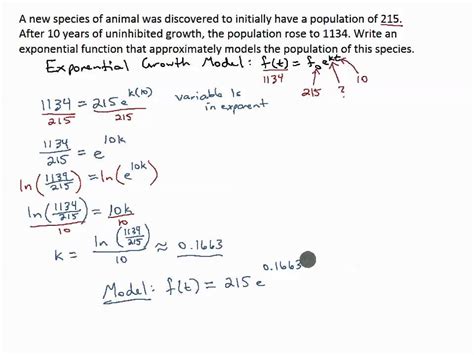 A new species of animal was discovered to initially have a population of 215.
After 10 years of uninhibited growth, the population rose to 1134. Write an
exponential function that approximately models the population of this species.
Exponential Growth Model: f(t) = f₀e^(kt)
1134 215 ? 10
1134 = 215 e^(k(10)) variable is
215 215 in exponent
1134/215 = e^(10k)
ln(1134/215) = ln(e^(10k))
ln(1134/215)/10 = 10k/10
k = ln(1134/215)/10 ≈ 0.1663
Model: f(t) = 215 e^(0.1663